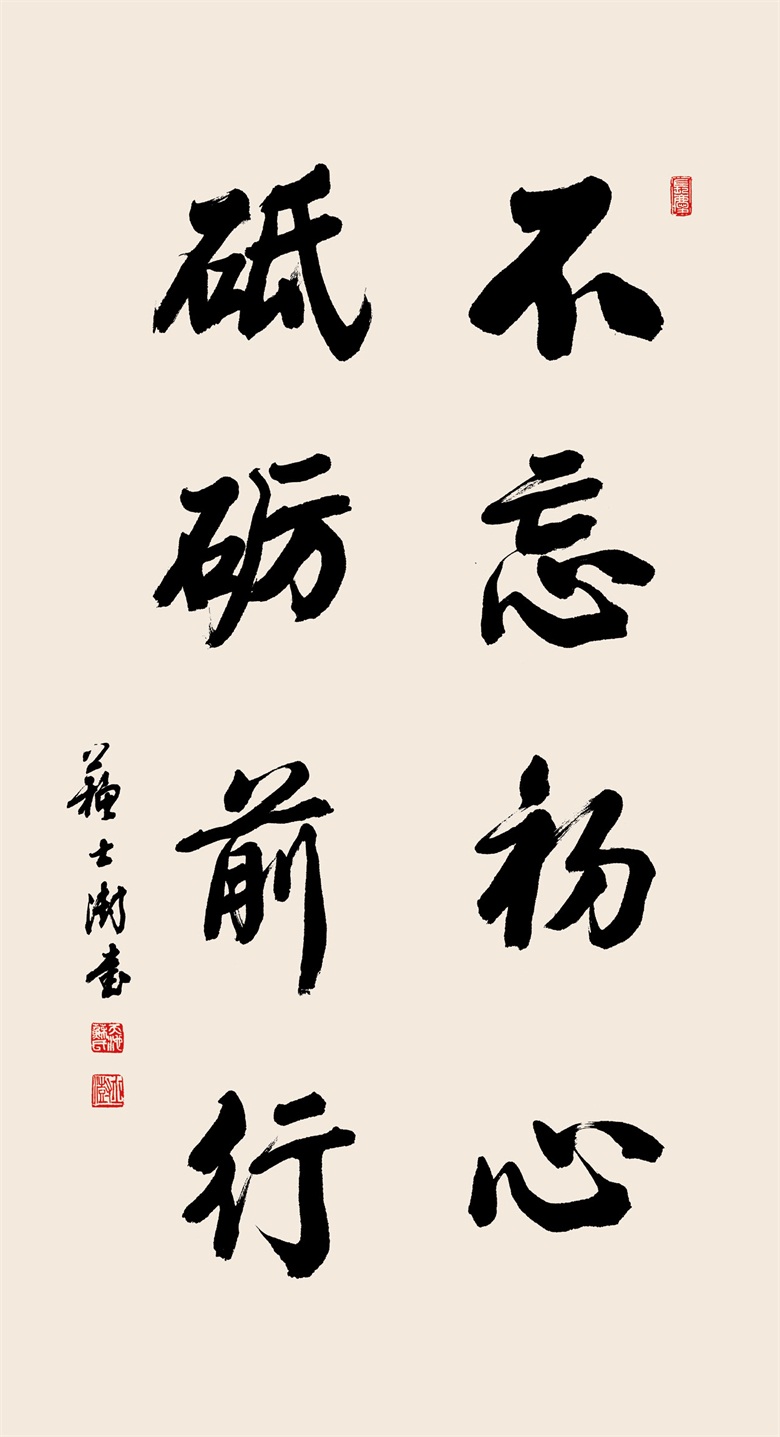 不忘初心
砥砺前行
蘇士澍書